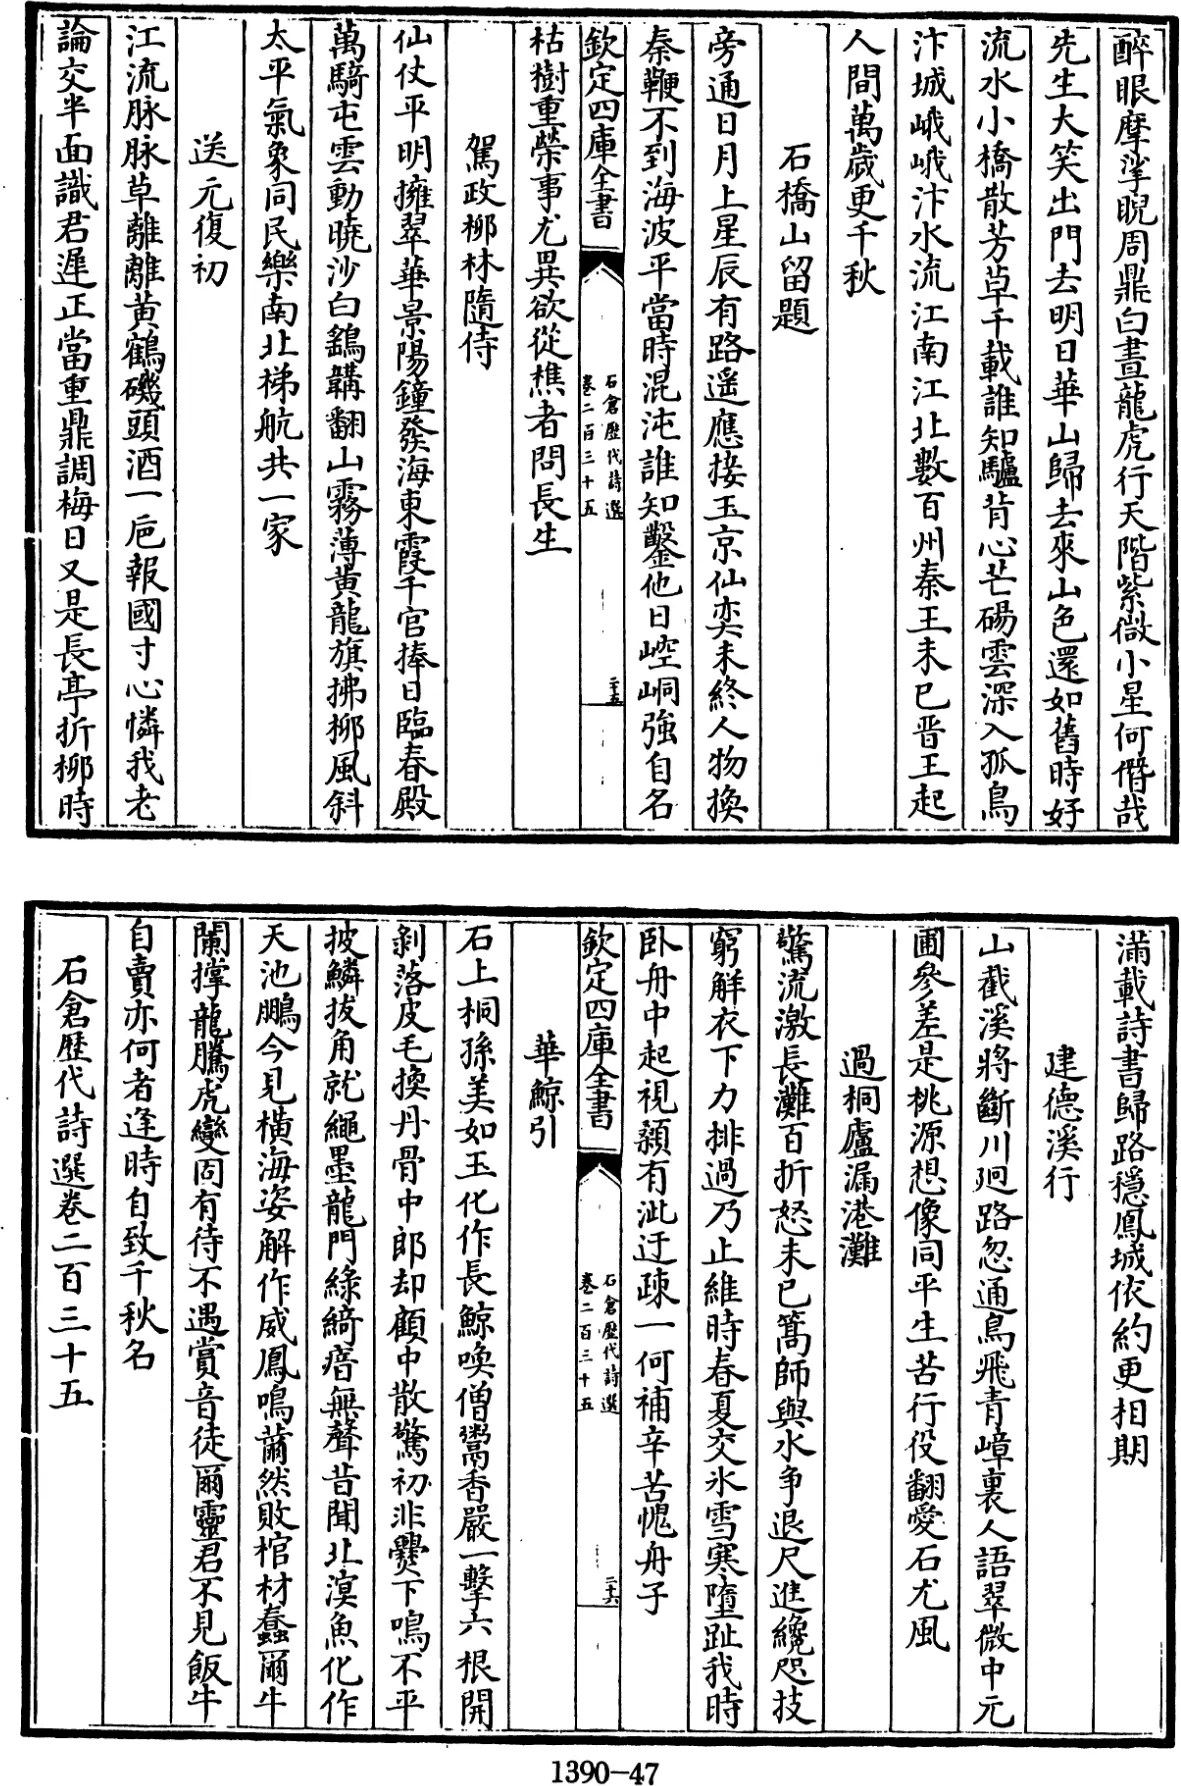 醉眼摩挲睨周鼎白晝龍虎行天階紫微小星何僭哉
先生大笑出門去明日華山歸去來山色還如舊時好
流水小橋散芳草千載誰知驢背心芒碭雲深入孤鳥
汴城峨峨汴水流江南江北數百州秦王未已晋王起
人間萬歲更千秋
石橋山留題
旁通日月上星辰有路遥應接玉京仙奕未終人物換
秦鞭不到海波平當時混沌誰知鑿他日崆峒強自名
欽定四庫全書
石倉歷代詩選
卷二百三十五
二十五
枯樹重榮事尤異欲從樵者問長生
駕政栁林隨侍
仙仗平明擁翠華景陽鐘發海東霞千官捧日臨春殿
萬騎屯雲動曉沙白鷂韝翻山霧薄黄龍旗拂栁風斜
太平氣象同民樂南北梯航共一家
送元復初
江流脉脉草離離黄鶴磯頭酒一巵報國寸心憐我老
論交半面識君遲正當重鼎調梅日又是長亭折栁時
滿載詩書歸路穩鳳城依約更相期
建德溪行
山截溪將斷川廻路忽通鳥飛青嶂裏人語翠微中元
圃參差是桃源想像同平生苦行役翻愛石尤風
過桐廬漏港灘
驚流激長灘百折怒未已篙師與水争退尺進纔咫技
窮解衣下力排過乃止維時春夏交氷雪寒墮趾我時
卧舟中起視顙有泚迂疎一何補辛苦愧舟子
欽定四庫全書
石倉歷代詩選
卷二百三十五
二十六
華鯨引
石上桐孫美如玉化作長鯨喚僧粥香嚴一擊六根開
剥落皮毛換丹骨中郎却顧中散驚初非爨下鳴不平
披鱗拔角就繩墨龍門綠綺瘖無聲昔聞北溟魚化作
天池鵬今見橫海姿解作威鳳鳴薾然敗棺材蠢爾牛
闌撑龍騰虎變固有待不遇賞音徒爾靈君不見飯牛
自賣亦何者逢時自致千秋名
石倉歷代詩選卷二百三十五
1390-47